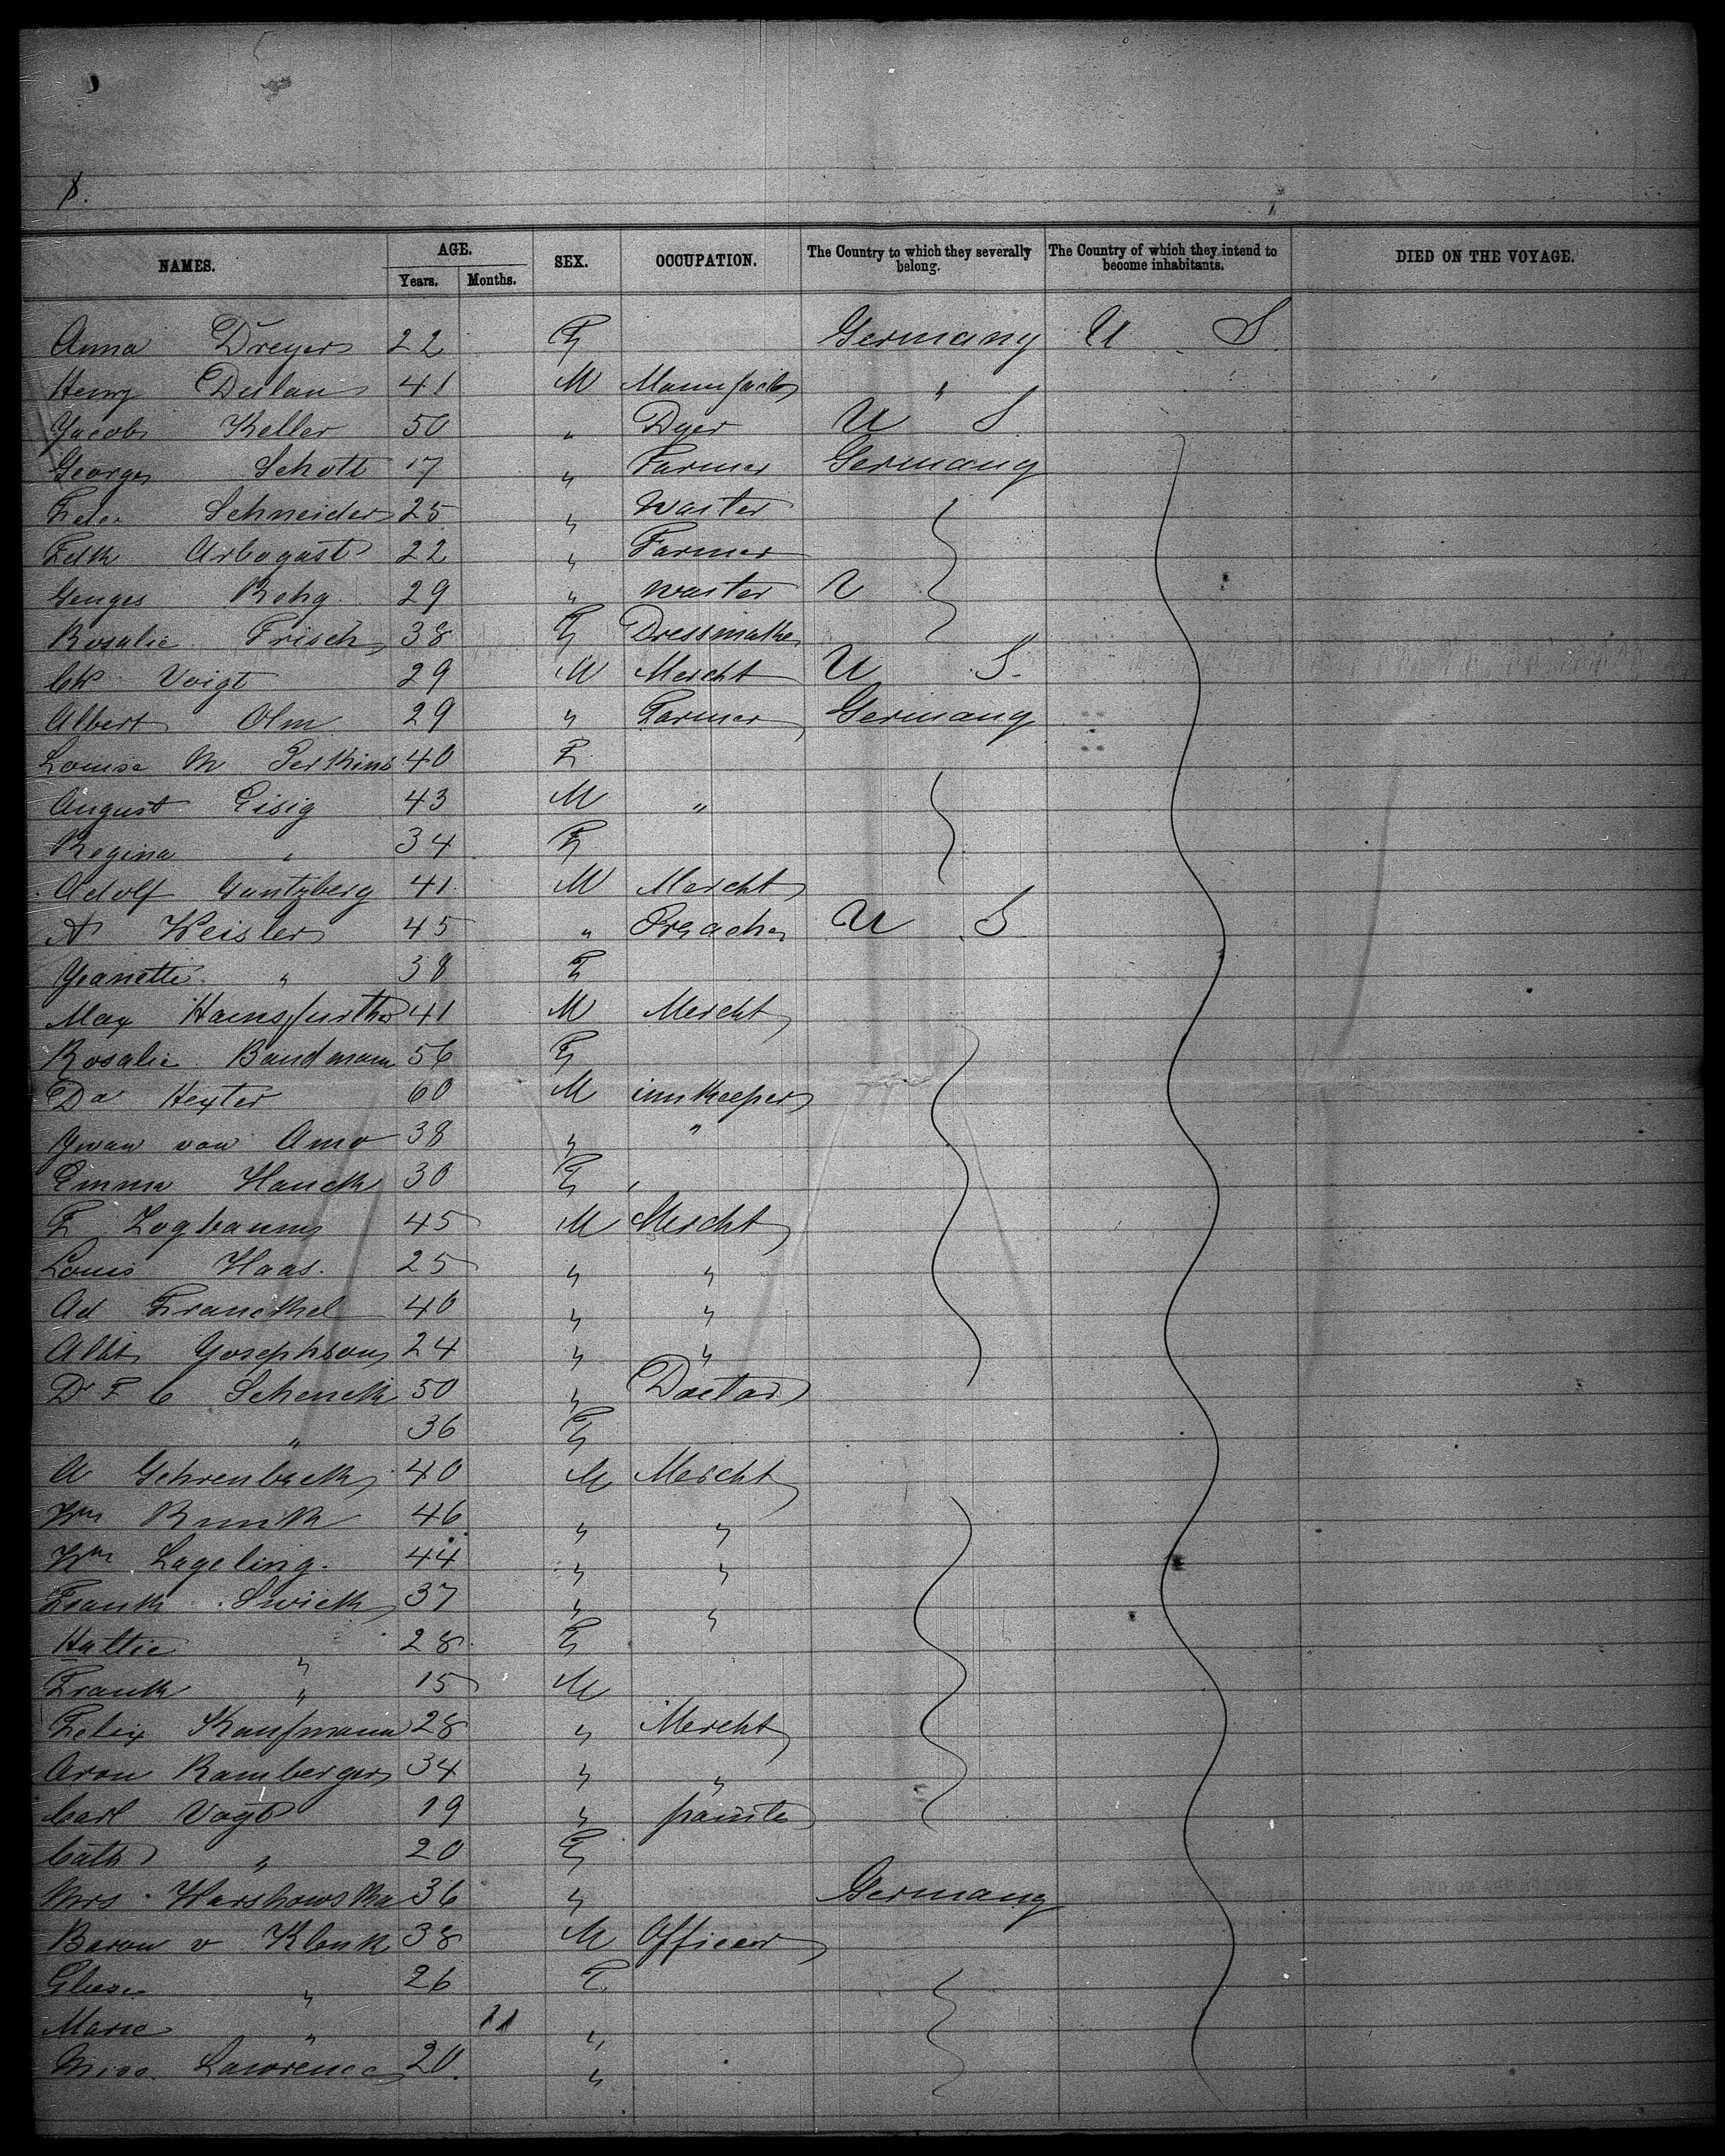 NAMES. AGE. Years. Months. SEX. OCCUPATION. The Country to which they severally belong. The Country of which they intend to become inhabitants. DIED ON THE VOYAGE.
Anna Dreyer 22 F Germany U S
Henry 41 M "
Jacob Keller 50 " Dyer U S
George Schott 17 " Farmer Germany
Schneider 25 " Waiter
Arbogast 22 " Farmer
Rehg 29 " waiter
Rosalie Frisch 38 F Dressmaker
Voigt 29 M Mercht U S.
Albert Olm 29 " Farmer Germany
Louise M Perkins 40 F
August Eisig 43 M "
Regina " 34 F
Adolf Guntzberg 41 M Mercht
A 45 " Preacher U S
Jeanette " 38 F
Max Hainsfurther 41 M Mercht
Rosalie Bandmann 56 F
Hexter 60 M innkeeper
von 38 " "
Emma Hauck 30 F
F Zogbaum 45 M Mercht
Louis Haas. 25 " "
Ad Franckel 40 " "
Albt Josephson 24 " "
Dr F C Schenck 50 " Doctor
" 36 F
A Gehrenbeck 40 M Mercht
Wm 46 " "
Wm Lageling. 44 " "
Frank Swick 37 " "
Hattie " 28 F
Frank " 15 M
Felix Kaufmann 28 " Mercht
Aron Ramberger 34 " "
Carl Vogt 19 " painter
Cath " 20 F
Mrs Warshowska 36 " Germany
Baron v Klenk 38 M Officer
" 26 F
Marie " 11 "
Miss Lawrence 20. "